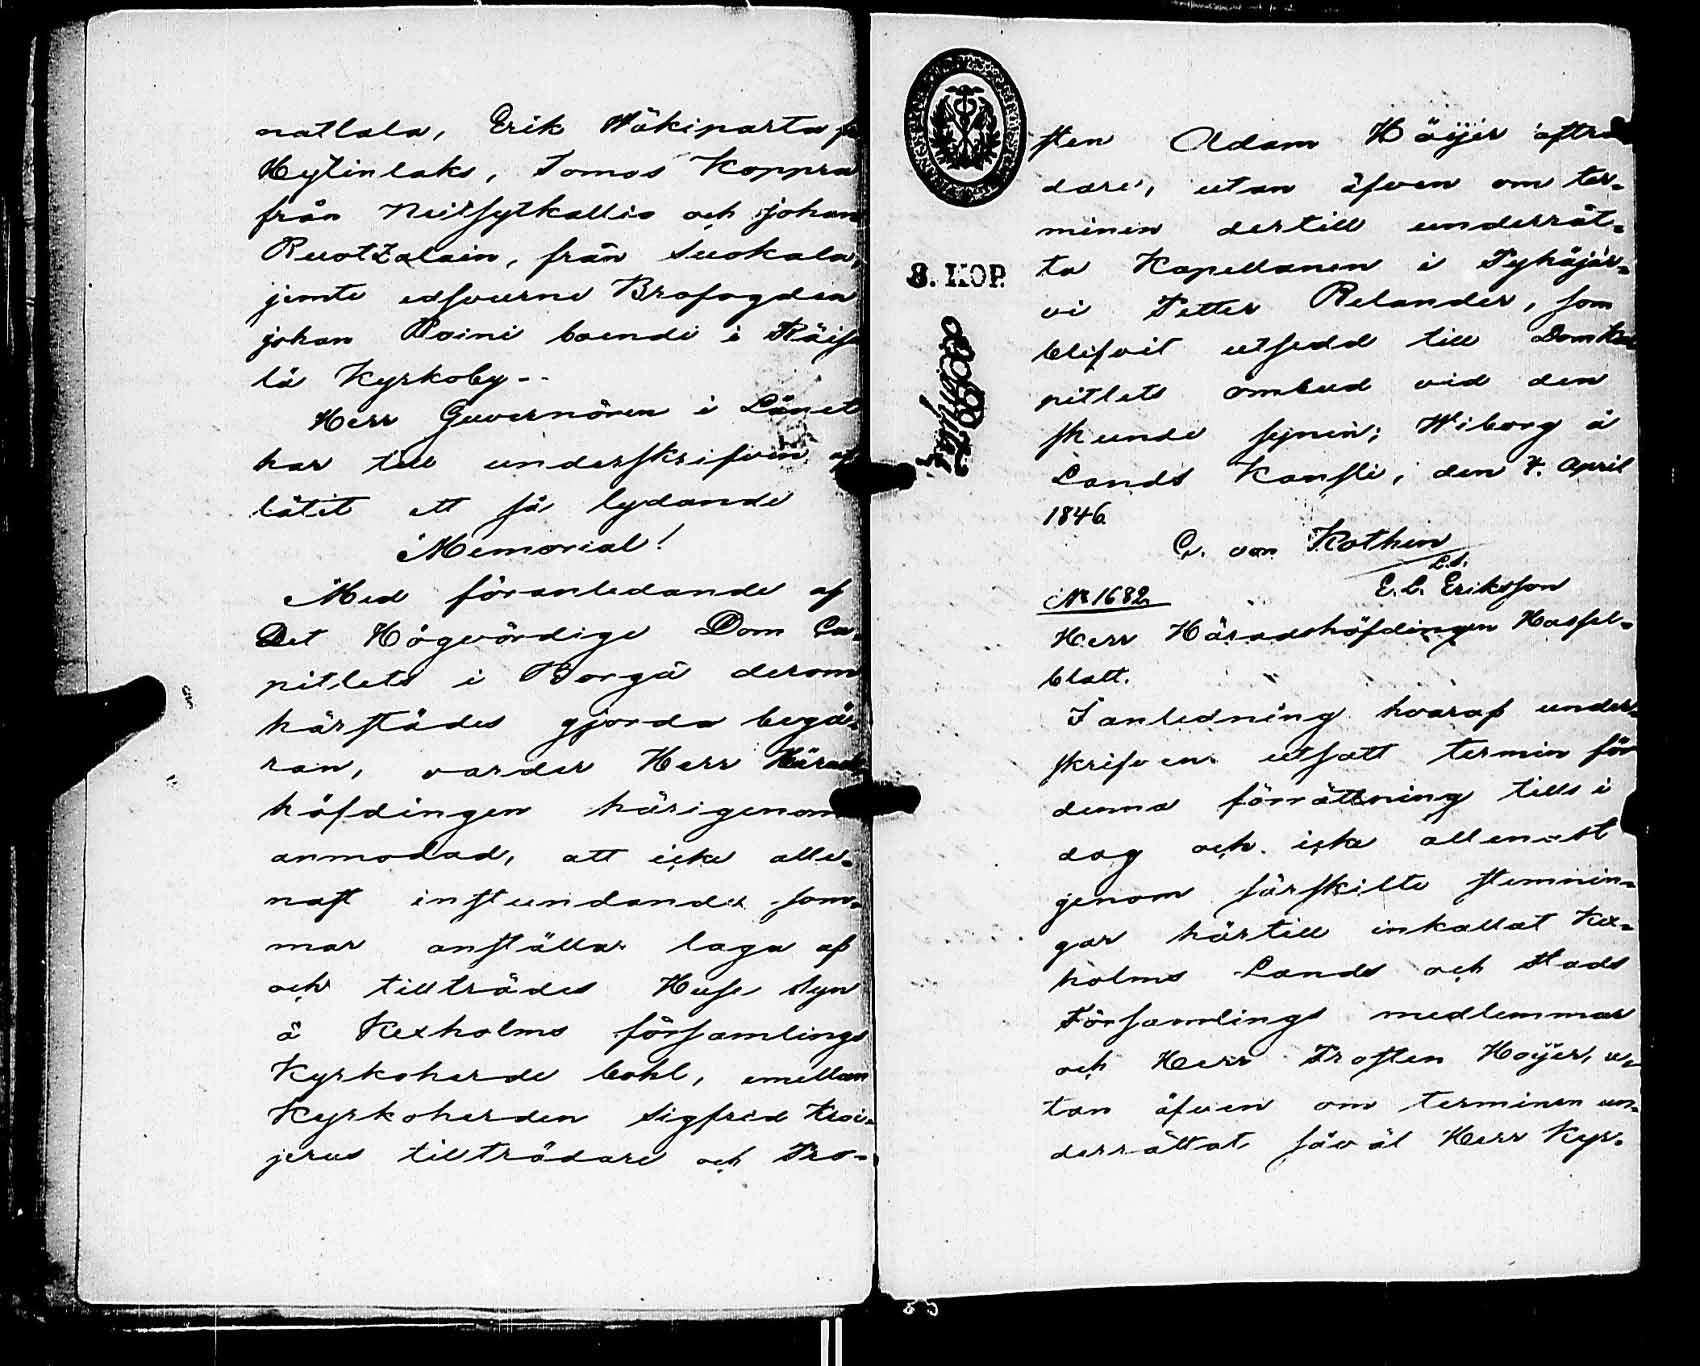 natlala, Erik Wäkiparta
Hytinlaks, Tomas Koppra
från Neitsytkallio och Johan
Ruotzalain, från Suokala,
jemte edsvurne Brofogden
Johan Paini boende i Räise
lä Kyrkoby--
Herr Guvernören i Länet
har till underskrifven af
låtit ett så lydande
Memorial!
Med föranledande af
Det Högvördige Dom Ca-
pitlets i Borgå derom
härstädes gjorda begä-
ran, varder Herr Härads
höfdingen härigenom
anmodad, att icke alle-
nast instundande som-
mar anställa laga af
och tillträdes Huse Syn
å Kexholms församlings
Kyrkoherde bohl, emellan
Kyrkoherden Sigfrid Kroi-
jerus tillträdare och Pro-
sten Adam Höijer afträ
dare, utan äfven om ter-
minen dertill underrät-
ta Kapellanen i Pyhäjär-
vi Petter Relander, som
blifvit utsedd till Domka
pitlets ombud vid den
skunde synen; Wiborg å
Lands Kansli, den 7. April
1846.
C. von Kothen
L.S.
E. L. Eriksson
No 1682
Herr Häradshöfdingen Hassel-
blatt.
I anledning hvaraf under-
skrifven utsatt termin för
denna förrättning tills i
dag och icke allenast
genom särskilte stemnin-
gar härtill inkallat Kex-
holms Lands och Stads
Församlings medlemmar
och Herr Prosten Hoijer, u-
tan äfven om terminen un-
derrättat såväl Herr Kyr-
8. KOP.